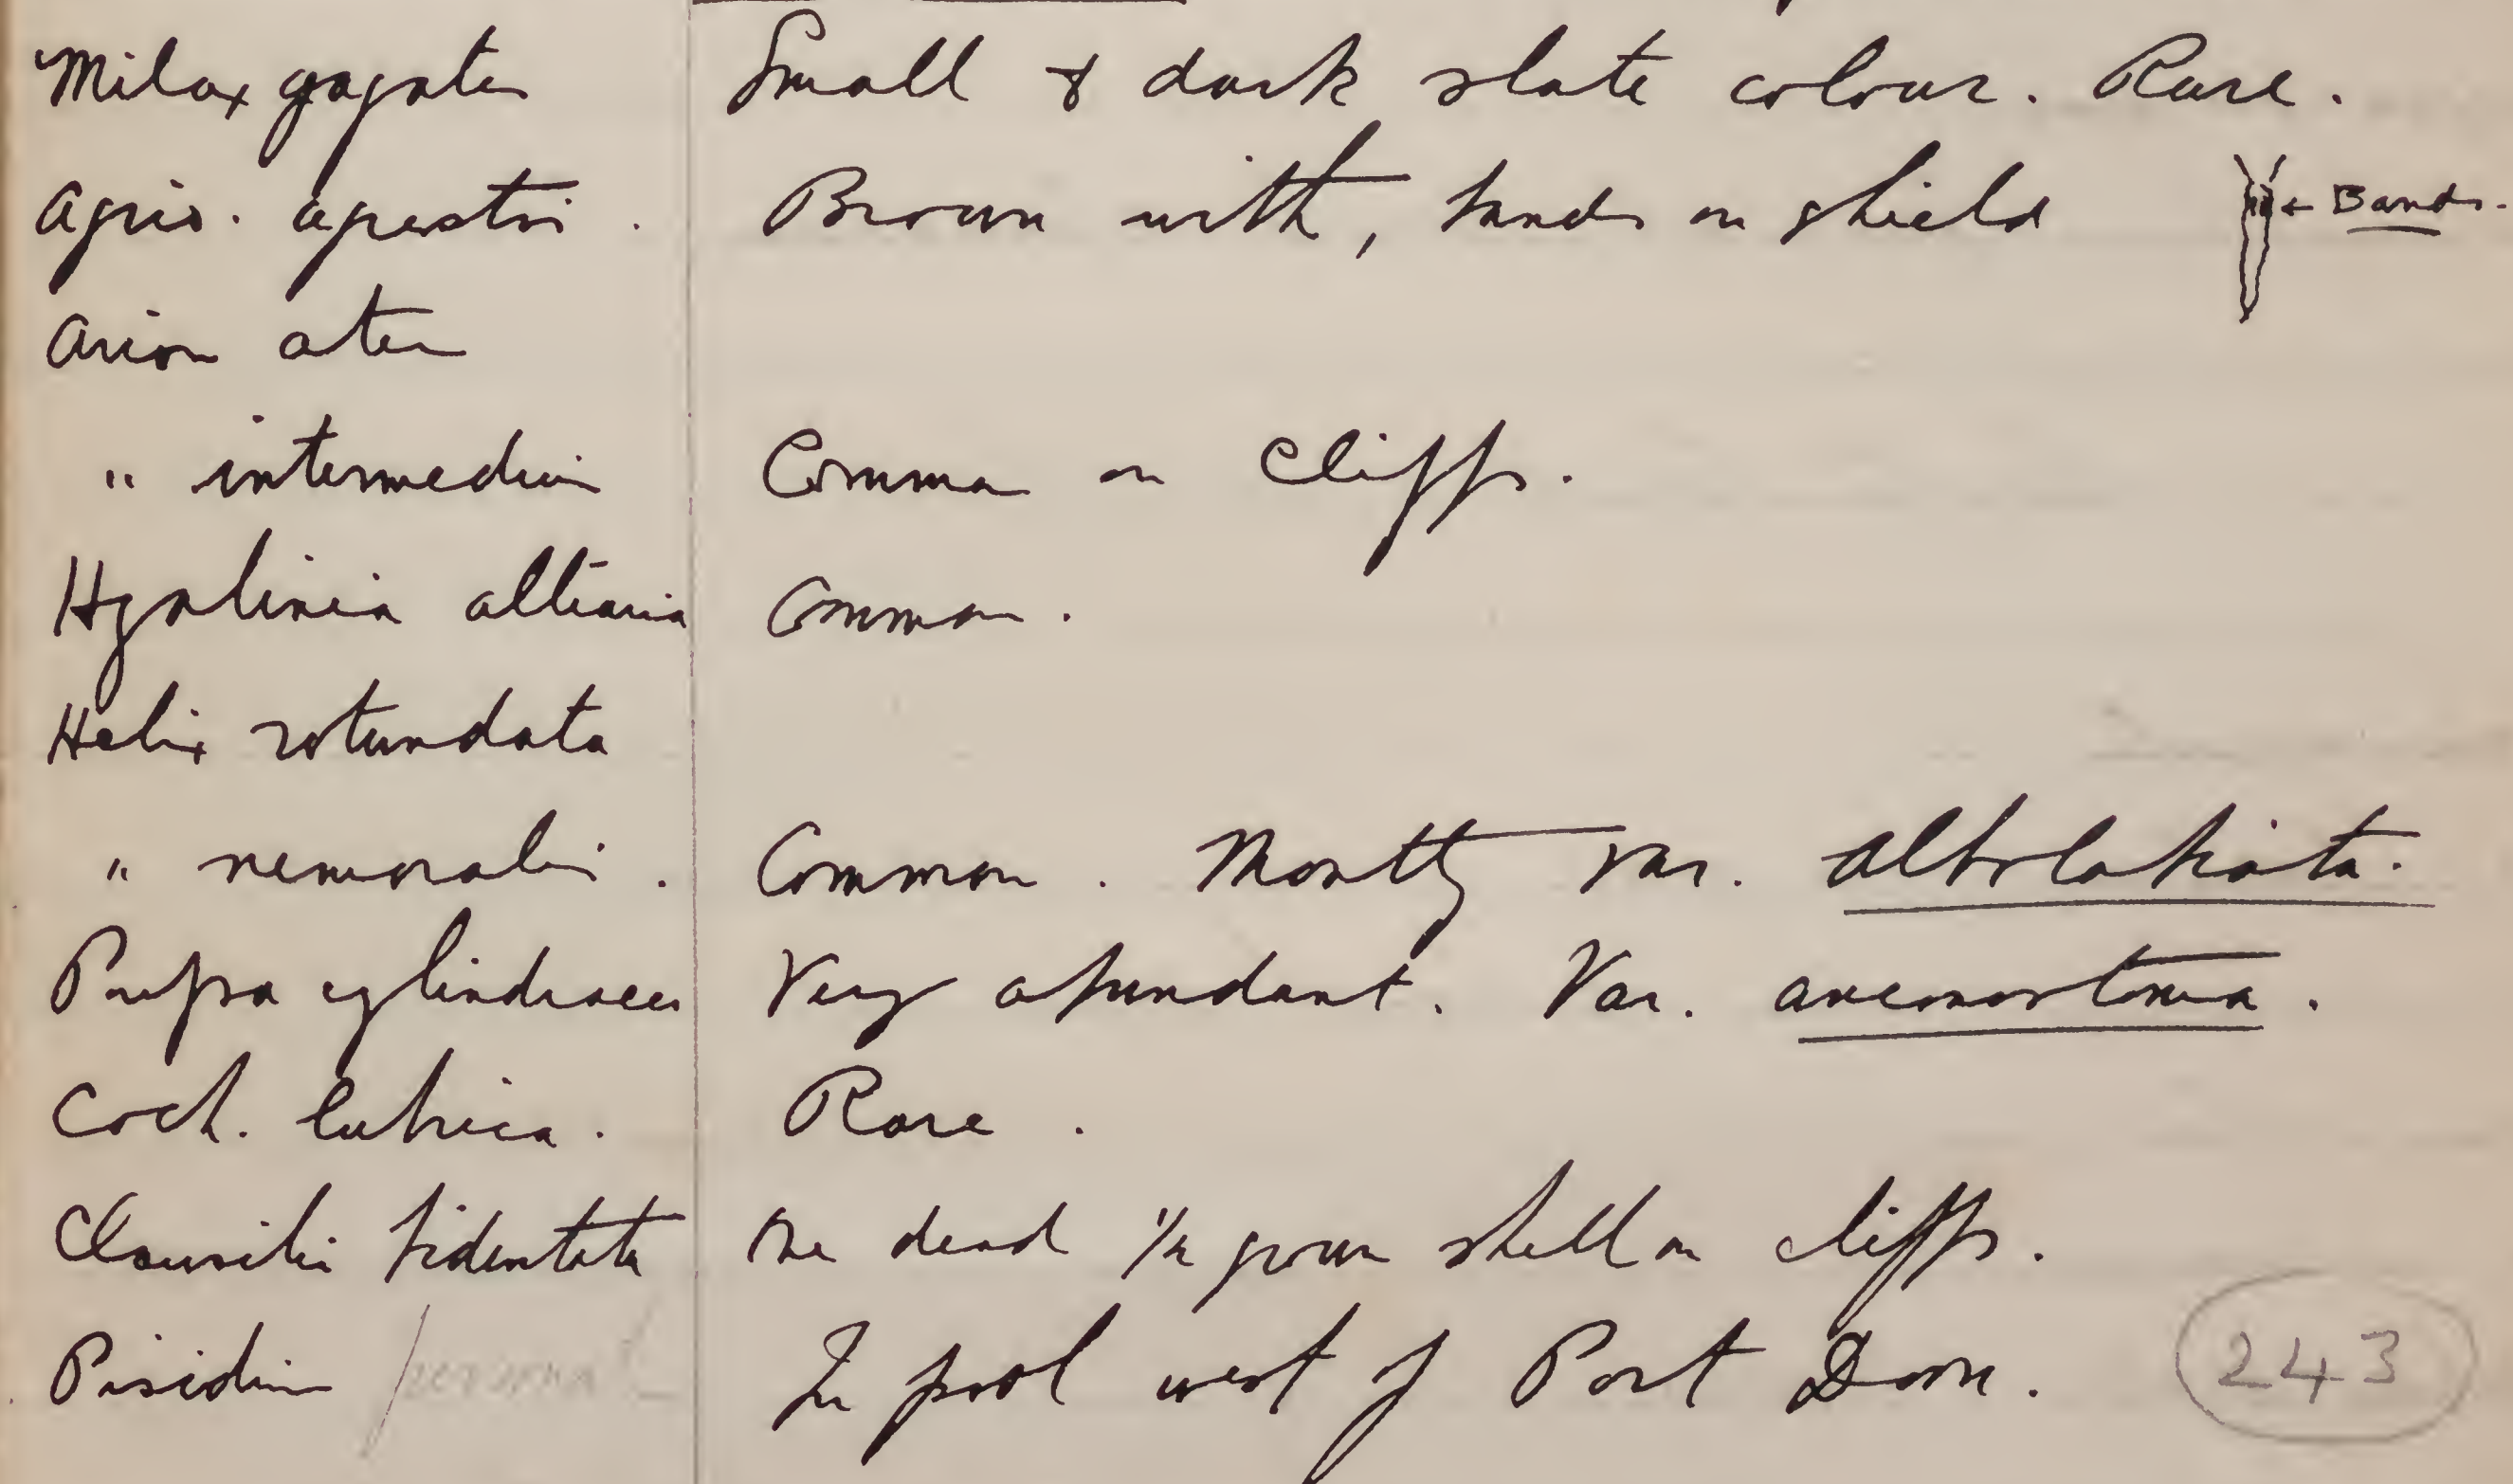 Milax gagates Small & dark slate colour. Rare.
Agrio. agrestis. Brown with, bands on shield ← Bands.
Arion ater
" intermedius Common on cliffs.
Hyalinia alliaria Common.
Helix rotundata
" nemoralis. Common. Mostly var. albolabiata.
Pupa cylindracea Very abundant. Var. anconostoma.
Coch. lubrica. Rare.
Clausilia bidentata One dead ½ grown shell on cliffs.
Pisidium personat In pool west of Port Doon.
243